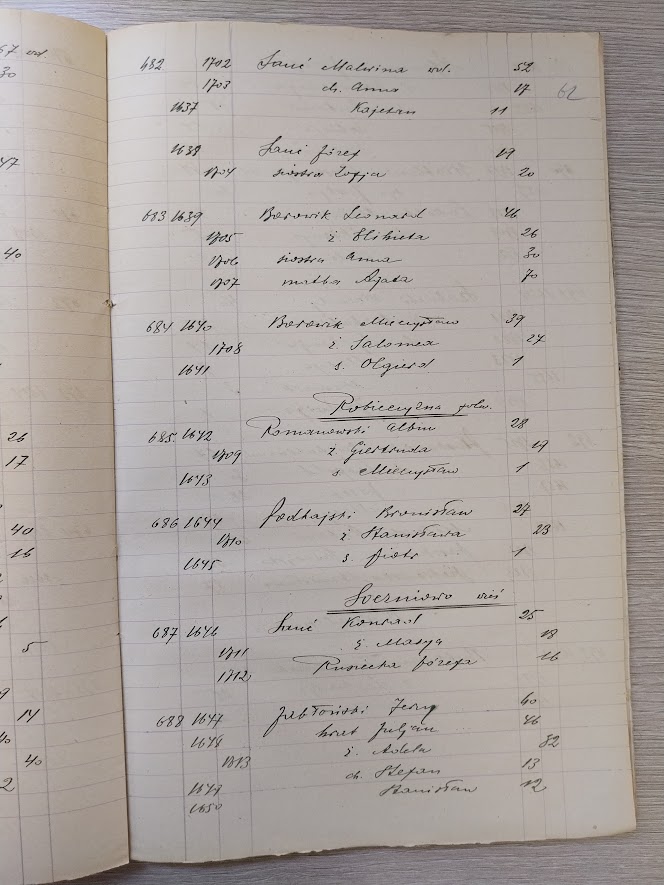 67 wd.
30
47
40
26
17
40
16
5
14
40
40
2
62
682 1702 Sauć Malwina wd. 52
1703 ch. Anna 17
1637 Kajetan 11
1638 Sauć Józef 19
1704 siostra Zofja 20
683 1639 Borowik Leonard 46
1705 ż Elżbieta 26
1706 siostra Anna 30
1707 matka Agata 70
684 1640 Borowik Mieczysław 39
1708 ż. Salomea 27
1641 s. Olgierd 1
Kobieczyzna folw.
685 1642 Romanowski Albin 28
1709 ż Giertruda 19
1643 s Mieczysław 1
686 1644 Podhajski Bronisław 27
1710 ż Stanisława 23
1645 s. Piotr 1
Soczniowo wieś
687 1646 Sauć Konrad 25
1711 ż. Marya 18
1712 Rusiecka Józefa 16
688 1647 Jabłoński Jerzy 60
1648 brat Juljan 46
1713 ż. Adela 32
ch. Stefan 13
1649 Stanisław 12
1650